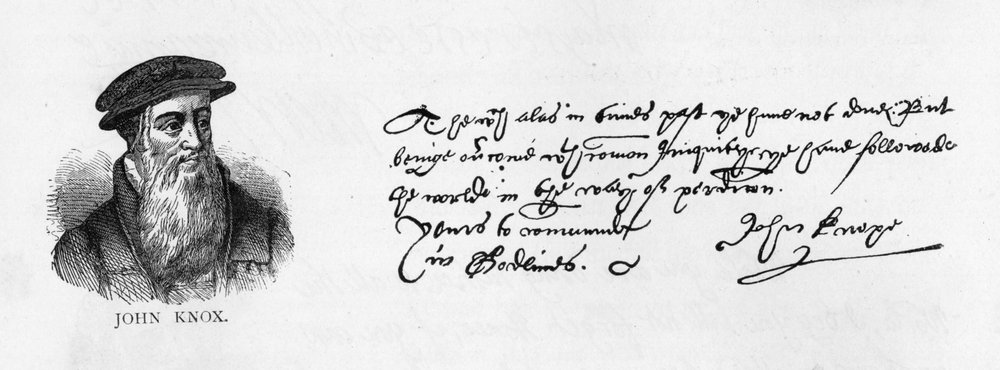 JOHN KNOX.
The wch alas in times past ye haue not done: But
beinge ourcome wth comon Iniquitye ye haue followed
the worlde in the way of perdition.
Yours to comaunde
in Godlines.
John Knoxe